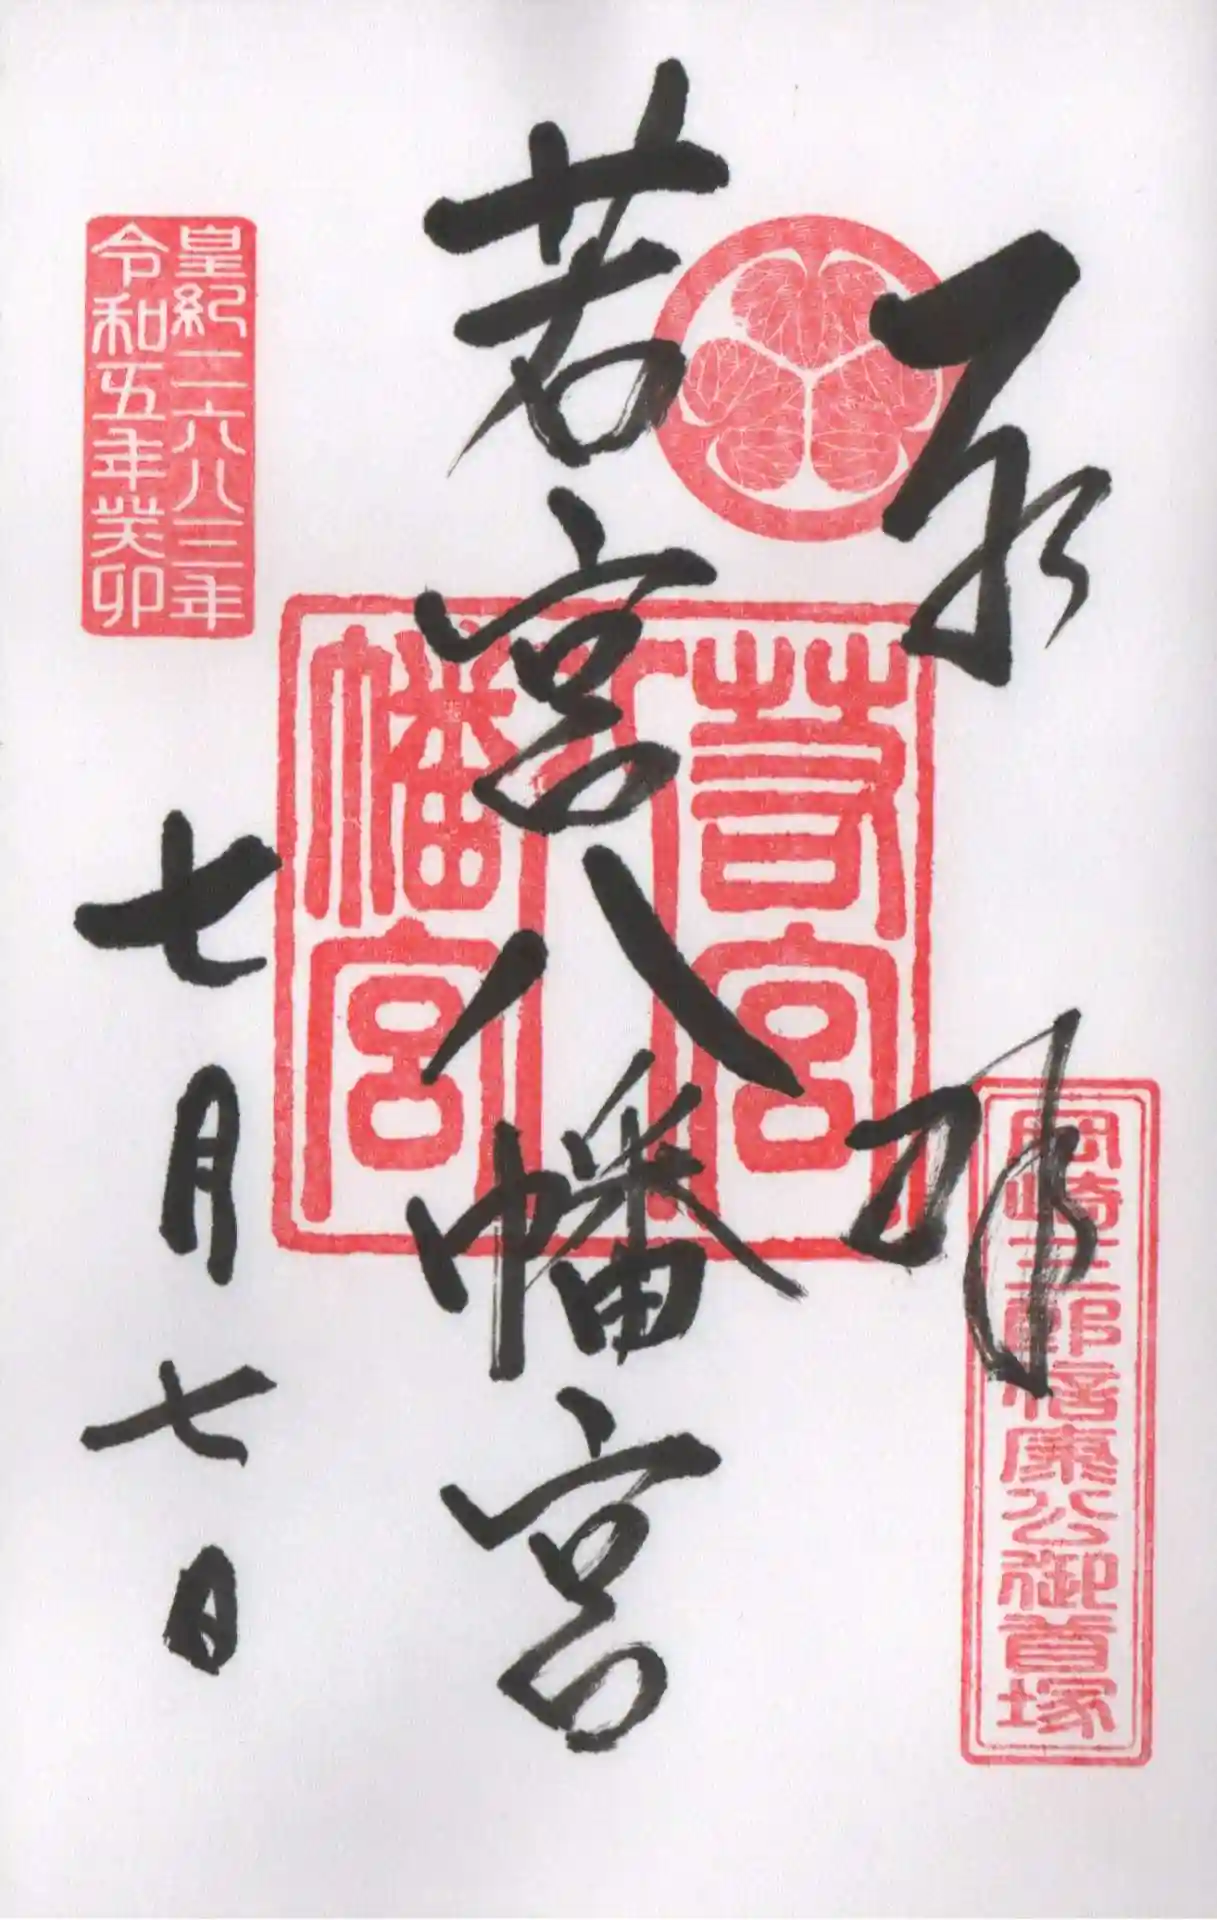 奉拝
岡崎三郎信康公御首塚
若宮八幡宮
若宮
八
幡宮
皇紀二六八三年
令和五年癸卯
七月七日